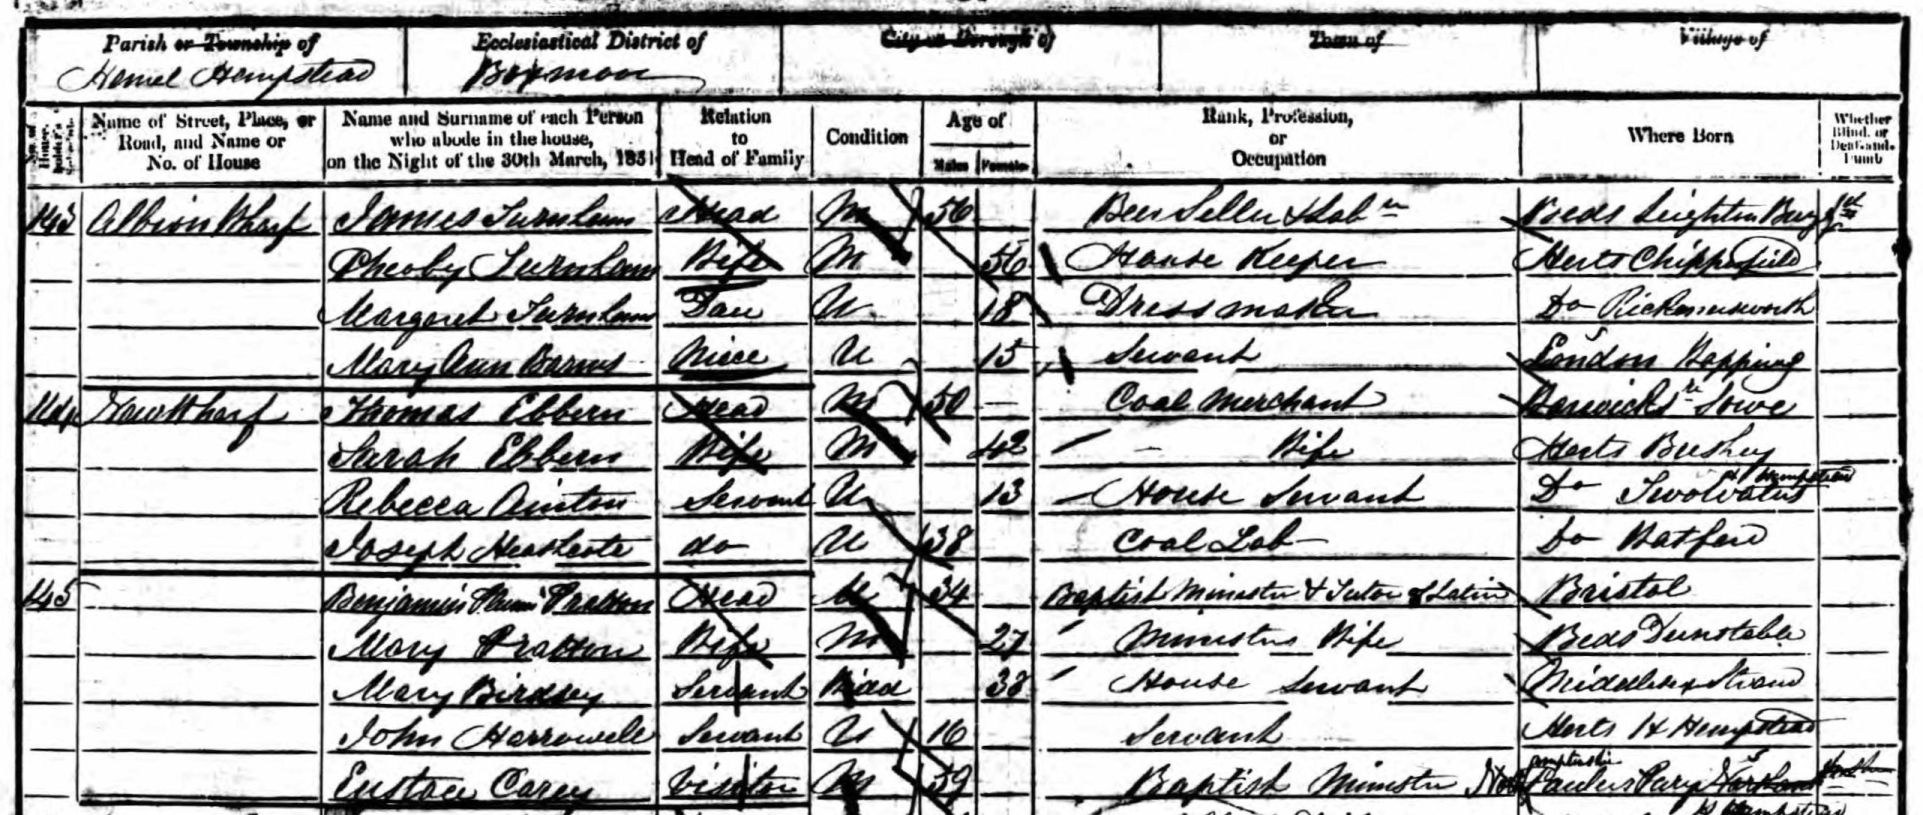 Parish or Township of Ecclesiastical District of City or Borough of Town of Village of
Hemel Hempstead Boxmoor
Name of Street, Place, or Road, and Name or No. of House
Name and Surname of each Person who abode in the house, on the Night of the 30th March, 1851
Relation to Head of Family
Condition
Age of
Males Females
Rank, Profession, or Occupation
Where Born
Whether Blind, or Deaf-and-Dumb
143 Albion Wharf James Turnham Head M 56 Beer Seller & Labrer Beds Leighton
Pheoby Turnham Wife M 56 House Keeper Herts Chipperfield
Margaret Turnham Dau U 18 Dress maker Do Rickmersworth
Mary Ann Barnes Niece U 15 Servant London Wapping
144 New Wharf Thomas Ebbern Head M 50 Coal Merchant Warwicksre Sowe
Sarah Ebbern Wife M 42 Wife Herts Bushey
Rebecca Ainton Servant U 13 House Servant Do Twowaters H Hempstead
Joseph Heathcote do U 38 Coal Lab Do Watford
145 Benjamin Pratten Head M 34 Baptist Minister & Tutor of Latin Bristol
Mary Pratten Wife M 27 Ministers Wife Beds Dunstable
Mary Birdsey Servant Widd 38 House Servant Middlesex Strand
John Harrowell Servant U 16 Servant Herts H Hempstead
Eustace Carey Visitor M 59 Baptist Minister Paulers Pury